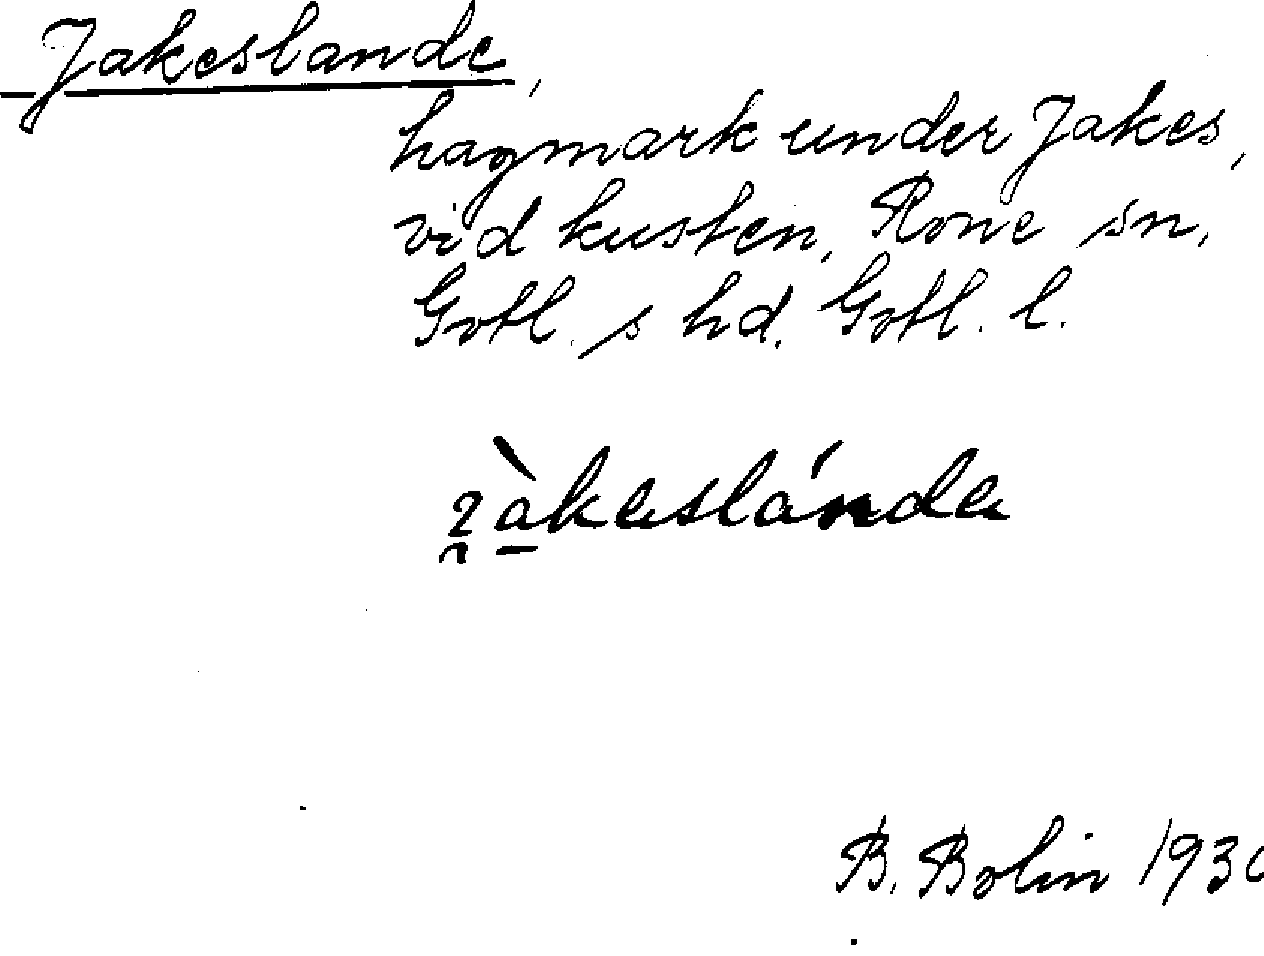 Jakeslande,
hagmark under Jakes,
vid kusten, Rone sn,
Gotl. s hd. Gotl. l.
B. Bolin